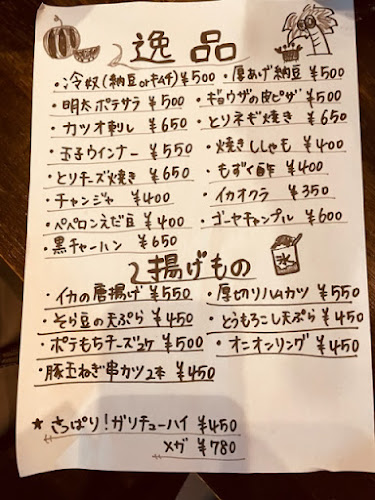 逸品
・冷奴(納豆orキムチ)¥500 ・厚あげ納豆 ¥500
・明太ポテサラ ¥500 ・ギョウザの皮ピザ ¥500
・カツオ刺し ¥650 ・とりネギ焼き ¥650
・玉子ウインナー ¥550 ・焼きししゃも ¥400
・とりチーズ焼き ¥650 ・もずく酢 ¥400
・チャンジャ ¥400 ・イカオクラ ¥350
・ペペロンえだ豆 ¥400 ・ゴーヤチャンプル ¥600
・黒チャーハン ¥650
揚げもの
氷
・イカの唐揚げ ¥550 ・厚切りハムカツ ¥550
・そら豆の天ぷら ¥450 ・とうもろこし天ぷら ¥450
・ポテもちチーズ2ケ ¥500 ・オニオンリング ¥450
・豚玉ねぎ串カツ2本 ¥450
★さっぱり!ガリチューハイ ¥450
メガ ¥780